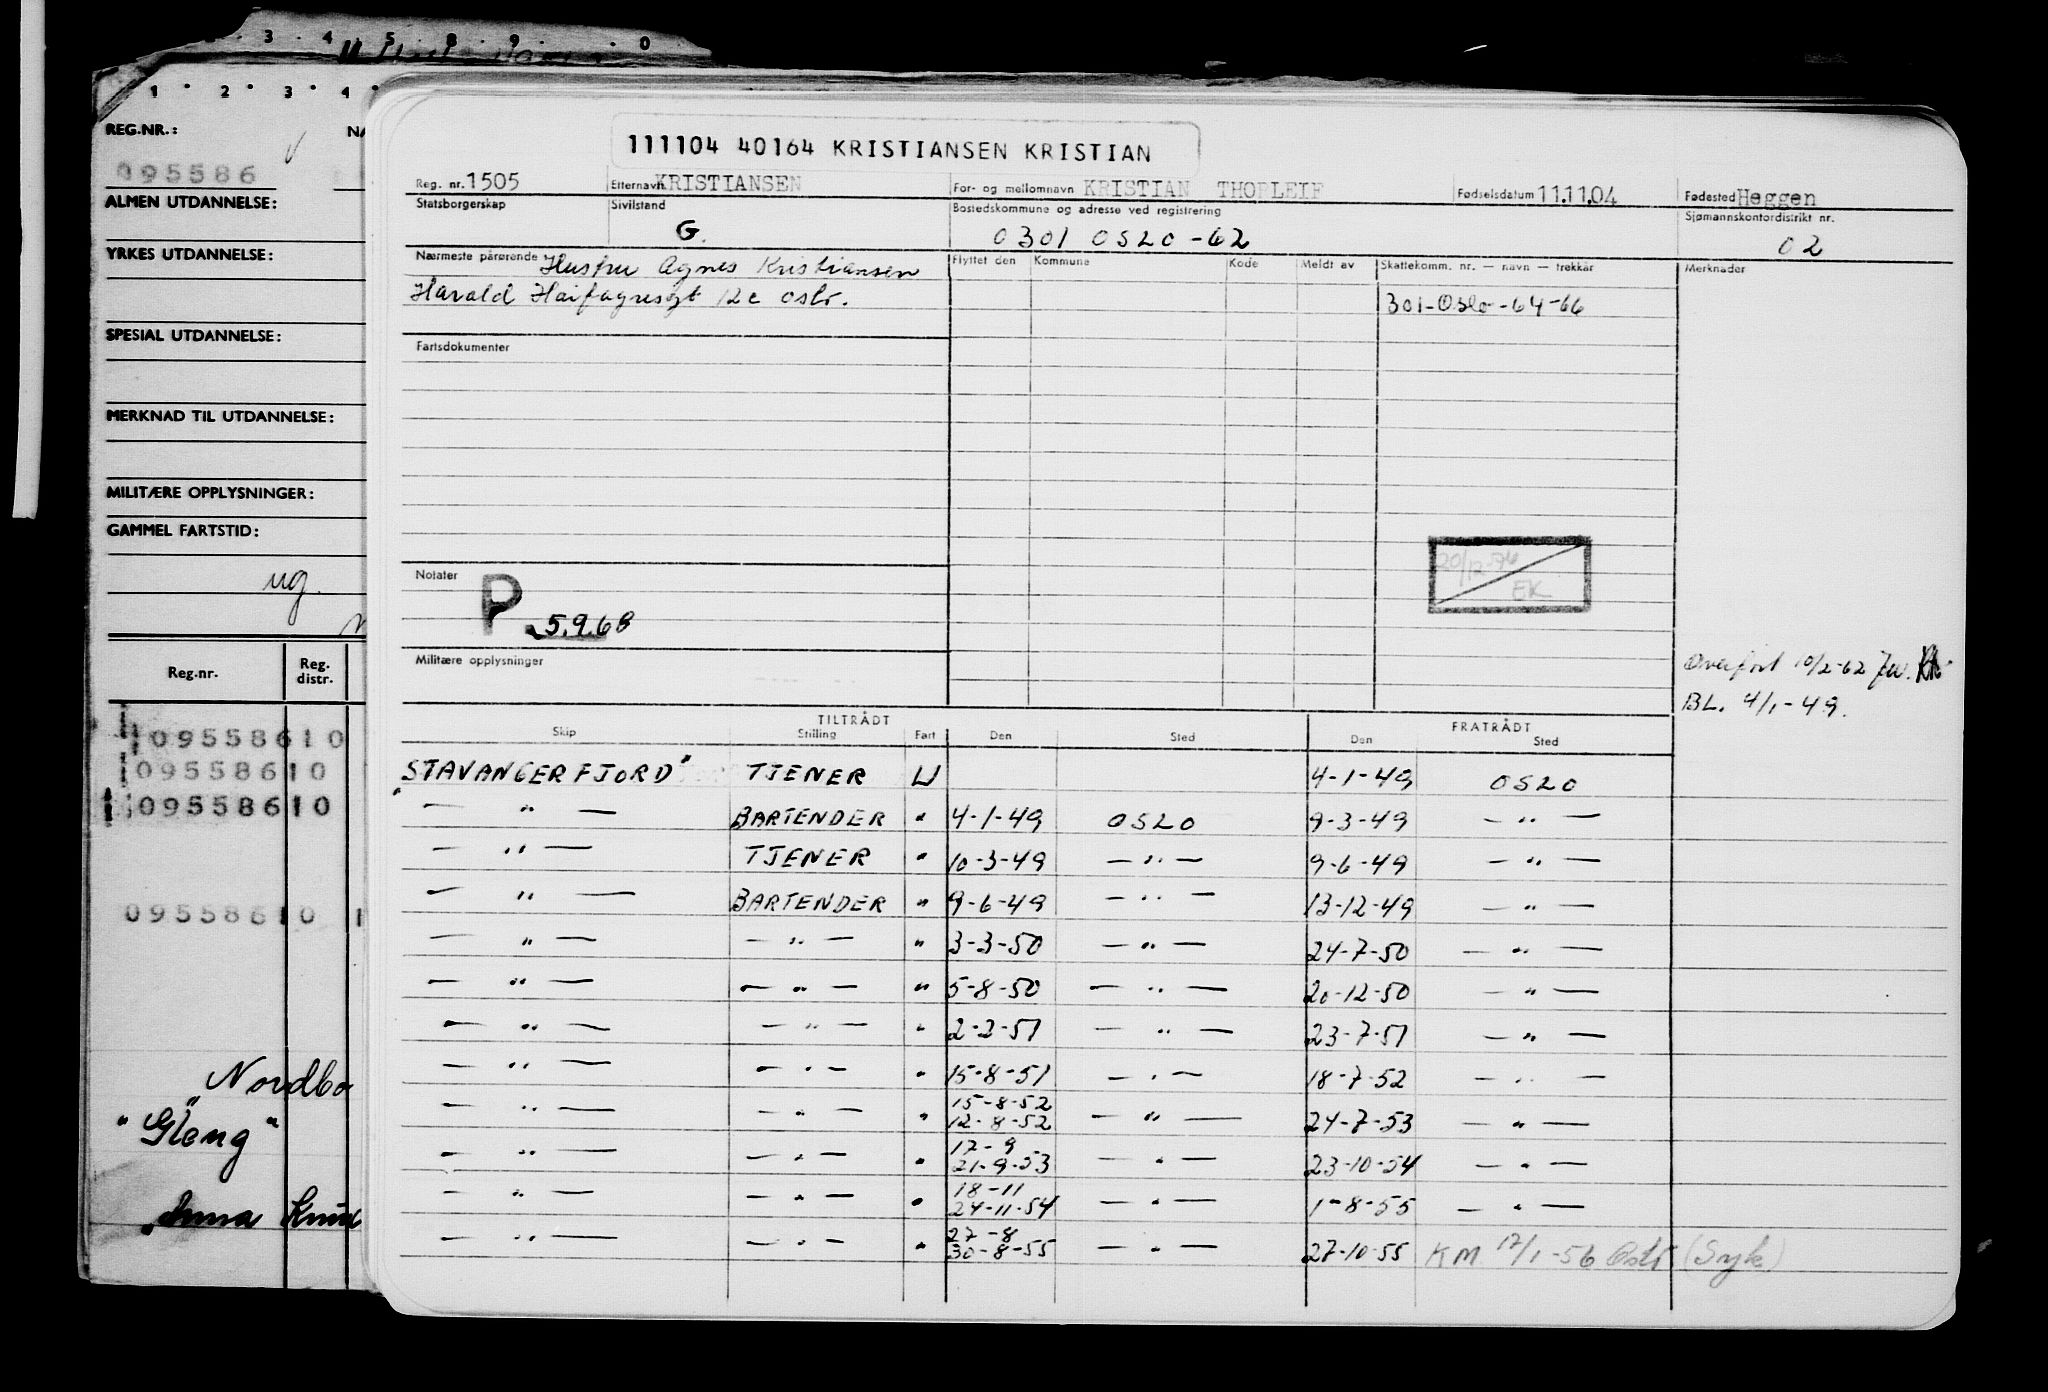 3 · 4 · 5 · 8 · 9 · 0
1 · 2 · 3 · 4
REG.NR.:
095586
ALMEN UTDANNELSE:
YRKES UTDANNELSE:
SPESIAL UTDANNELSE:
MERKNAD TIL UTDANNELSE:
MILITÆRE OPPLYSNINGER:
GAMMEL FARTSTID:
ug.
Reg.nr. Reg. distr.
09558610
09558610
09558610
09558610
"Nordbo
"Gleng"
"Anna Knud
111104 40164 KRISTIANSEN KRISTIAN
Reg. nr. 1505 Etternavn KRISTIANSEN For- og mellomnavn KRISTIAN THORLEIF Fødselsdatum 11.11.04 Fødested Heggen
Statsborgerskap Sivilstand Bostedskommune og adresse ved registrering Sjømannskontordistrikt nr.
G. 0301 OSLO-62 02
Nærmeste pårørende Hustru Agnes Kristiansen Flyttet den Kommune Kode Meldt av Skattekomm. nr. — navn — trekkår Merknader
Harald Haifagresgt 12c Oslo. 301-Oslo-64-66
Fartsdokumenter
20/12-76
EK
Notater
P 5.9.68
Militære opplysninger
Overført 10/2-62
BL. 4/1-49.
TILTRÅDT FRATRÅDT
Skip Stilling Fart Den Sted Den Sted
"STAVANGERFJORD" TJENER U 4-1-49 OSLO
— " — BARTENDER " 4-1-49 OSLO 9-3-49 — " —
— " — TJENER " 10-3-49 — " — 9-6-49 — " —
— " — BARTENDER " 9-6-49 — " — 13-12-49 — " —
— " — — " — " 3-3-50 — " — 24-7-50 — " —
— " — — " — " 5-8-50 — " — 20-12-50 — " —
— " — — " — " 2-2-51 — " — 23-7-51 — " —
— " — — " — " 15-8-51 — " — 18-7-52 — " —
15-8-52
— " — — " — " 12-8-52 — " — 24-7-53 — " —
17-9
— " — — " — " 21-9-53 — " — 23-10-54 — " —
18-11
— " — — " — " 24-11-54 — " — 1-8-55 — " —
27-8
— " — — " — " 30-8-55 — " — 27-10-55 KM 17/1-56 Oslo (Syk)